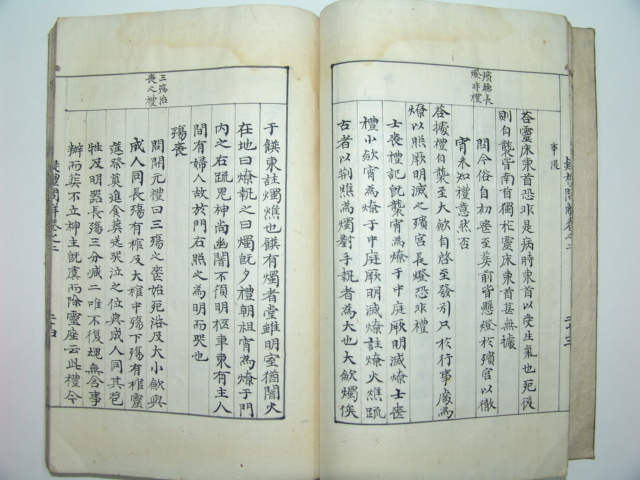 殯堂長
燈非禮
答靈床東首恐非是病時東首以受生氣也死後
則自襲皆南首獨於靈床東首甚無據
問今俗自初喪至葬前皆懸燈於殯宮以徹
宵未知禮意然否
答據禮自襲至大斂自啓至發引只於行事處爲
燎以照厥明滅之殯宮長燈恐非禮
士喪禮記旣襲宵爲燎于中庭厥明滅燎士喪
禮小斂宵爲燎于中庭厥明滅燎註燎火燋疏
古者以荊燋爲燭對手執者爲大也大斂燭俟
疑禮問解卷之二
二十三
三殤治
喪之禮
于饌東註燭燋也饌有燭者堂雖明室猶闇火
在地曰燎執之曰燭旣夕禮朝祖宵爲燎于門
內之右疏鬼神尚幽闇不須明柩車東有主人
間有婦人故於門右照之爲明而哭也
殤喪
問開元禮曰三殤之喪始死浴及大小斂與
成人同長殤有棺及大棺中殤下殤有棺靈
筵祭奠進食葬送哭泣之位與成人同其苞
牲及明器長殤三分減二唯不復魂無含事
辦而葬不立神主旣虞而除靈座云此禮今
疑禮問解卷之二
二十四